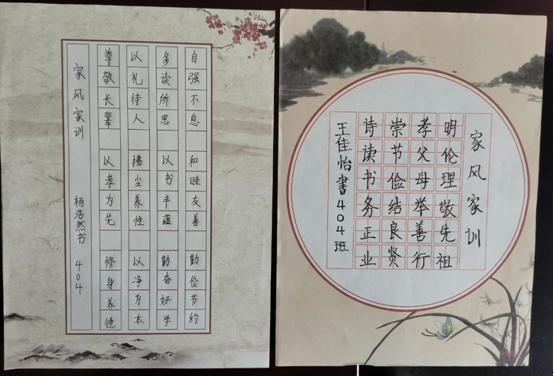 自强不息 和睦友善 勤俭节约
多读所思 以书丰蕴 勤奋好学
以礼待人 拂尘养性 以净为本
尊敬长辈 以孝为先 修身养德
家风家训 杨浩然书 404
家风家训
明伦理敬先祖
孝父母举善行
崇节俭结良贤
诗读书务正业
王佳怡書404班